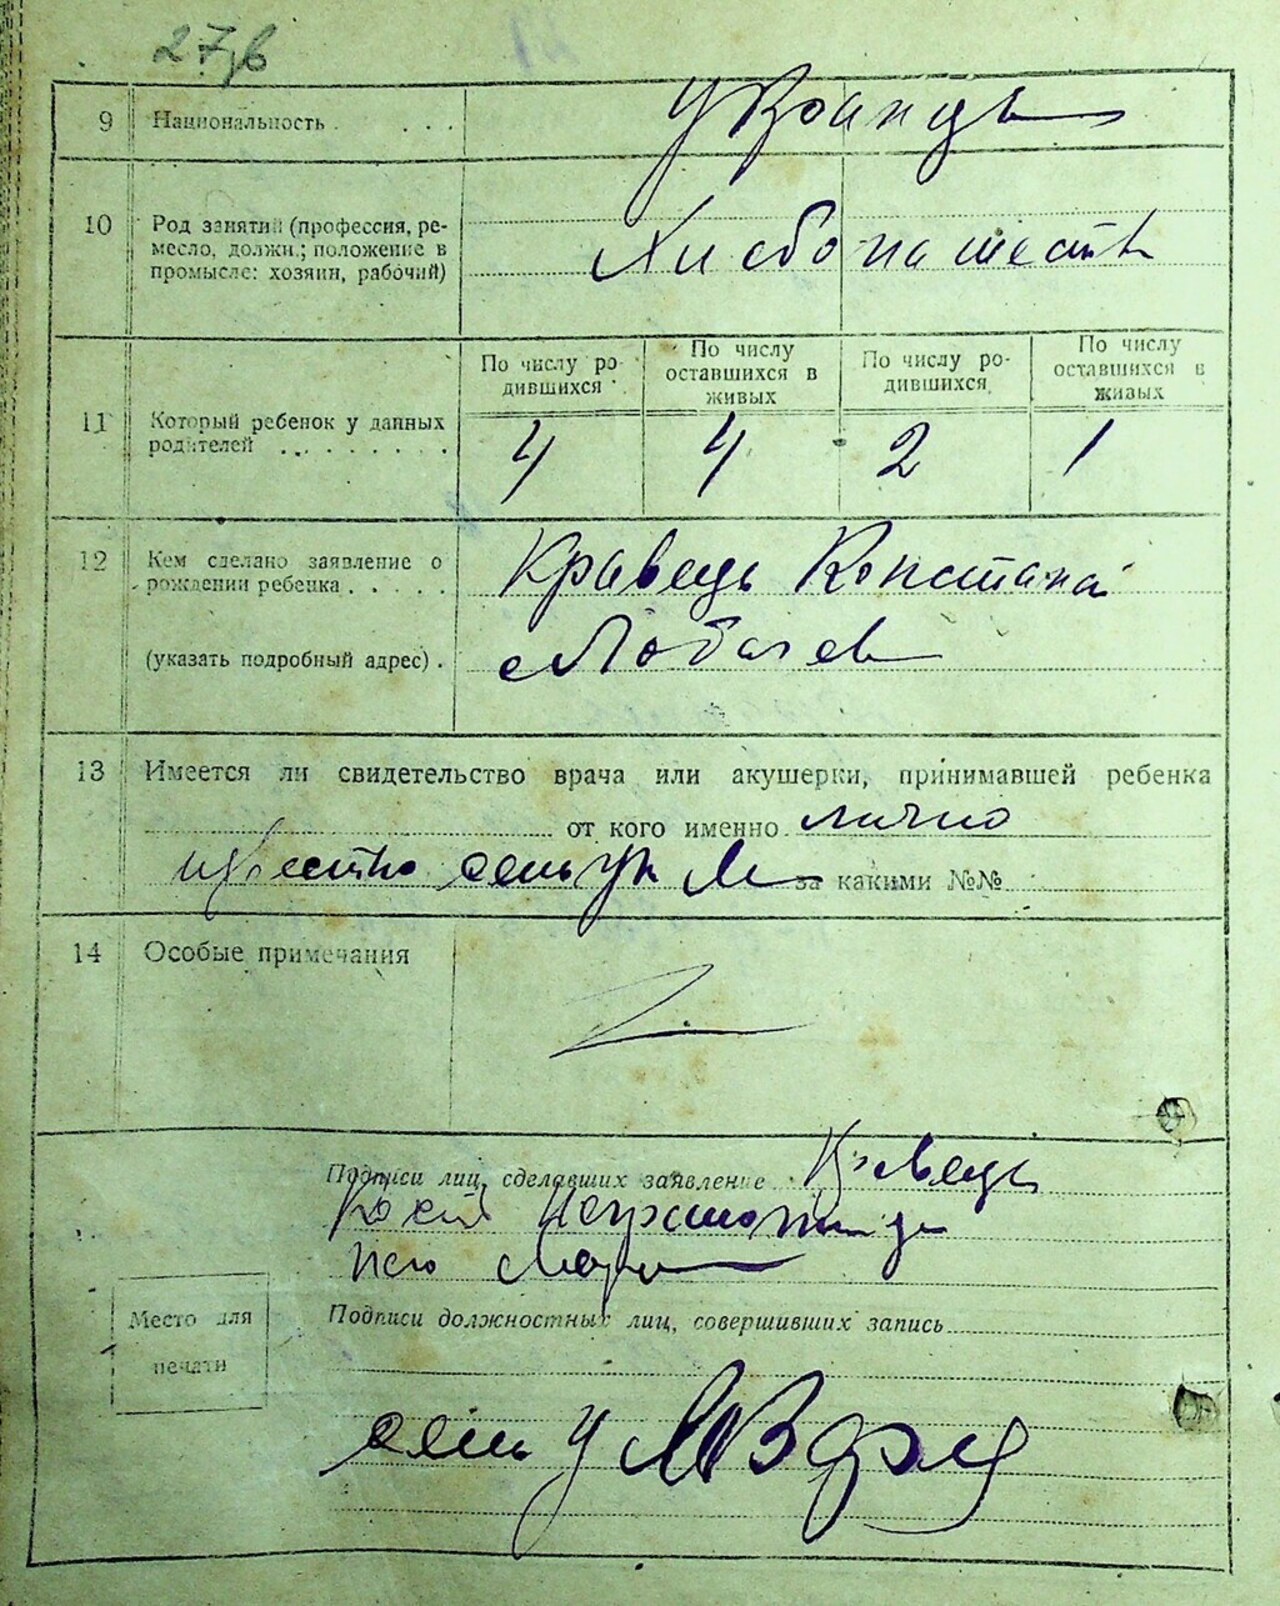 27
9 Национальность . . . .
Украинцы
10 Род занятий (профессия, ре-
месло, должн.; положение в
промысле: хозяин, рабочий)
Хлебопашеств
11 Который ребенок у данных
родителей . . . . . . . .
По числу ро-
дившихся
По числу
оставшихся в
живых
По числу ро-
дившихся
По числу
оставшихся в
живых
4 4 2 1
12 Кем сделано заявление о
рождении ребенка . . . . .
Кравець Констант
(указать подробный адрес) .
с Лобачев
13 Имеется ли свидетельство врача или акушерки, принимавшей ребенка
от кого именно лично
известно за какими №№
14 Особые примечания
Подписи лиц, сделавших заявление Кравець
Место для
печати
Подписи должностных лиц, совершивших запись